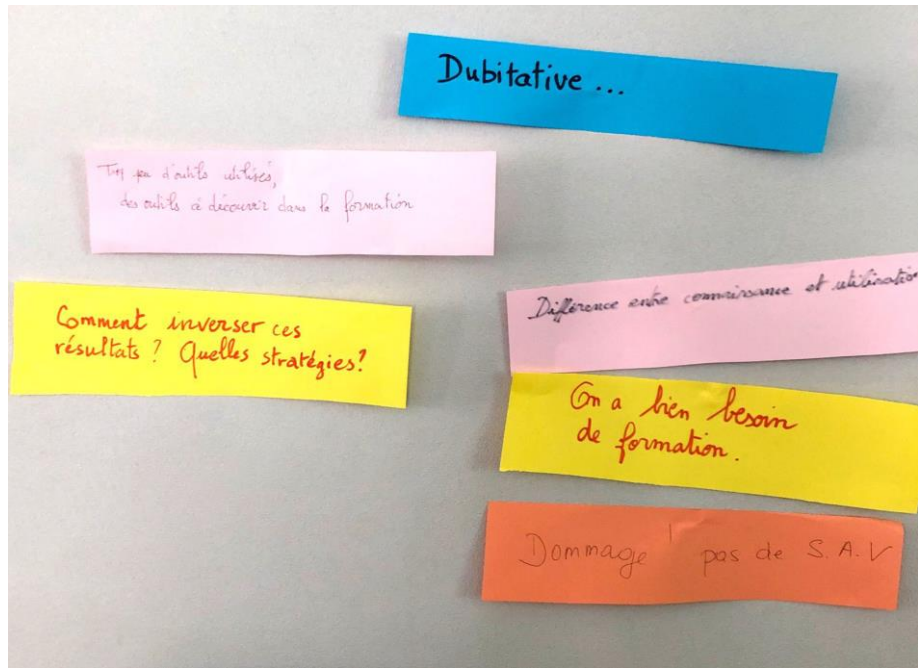 Dubitative ...
Trop peu d'outils utilisés,
des outils à découvrir dans la formation
Comment inverser ces
résultats ? Quelles stratégies?
Différence entre connaissance et utilisation
On a bien besoin
de formation.
Dommage ! pas de S.A.V